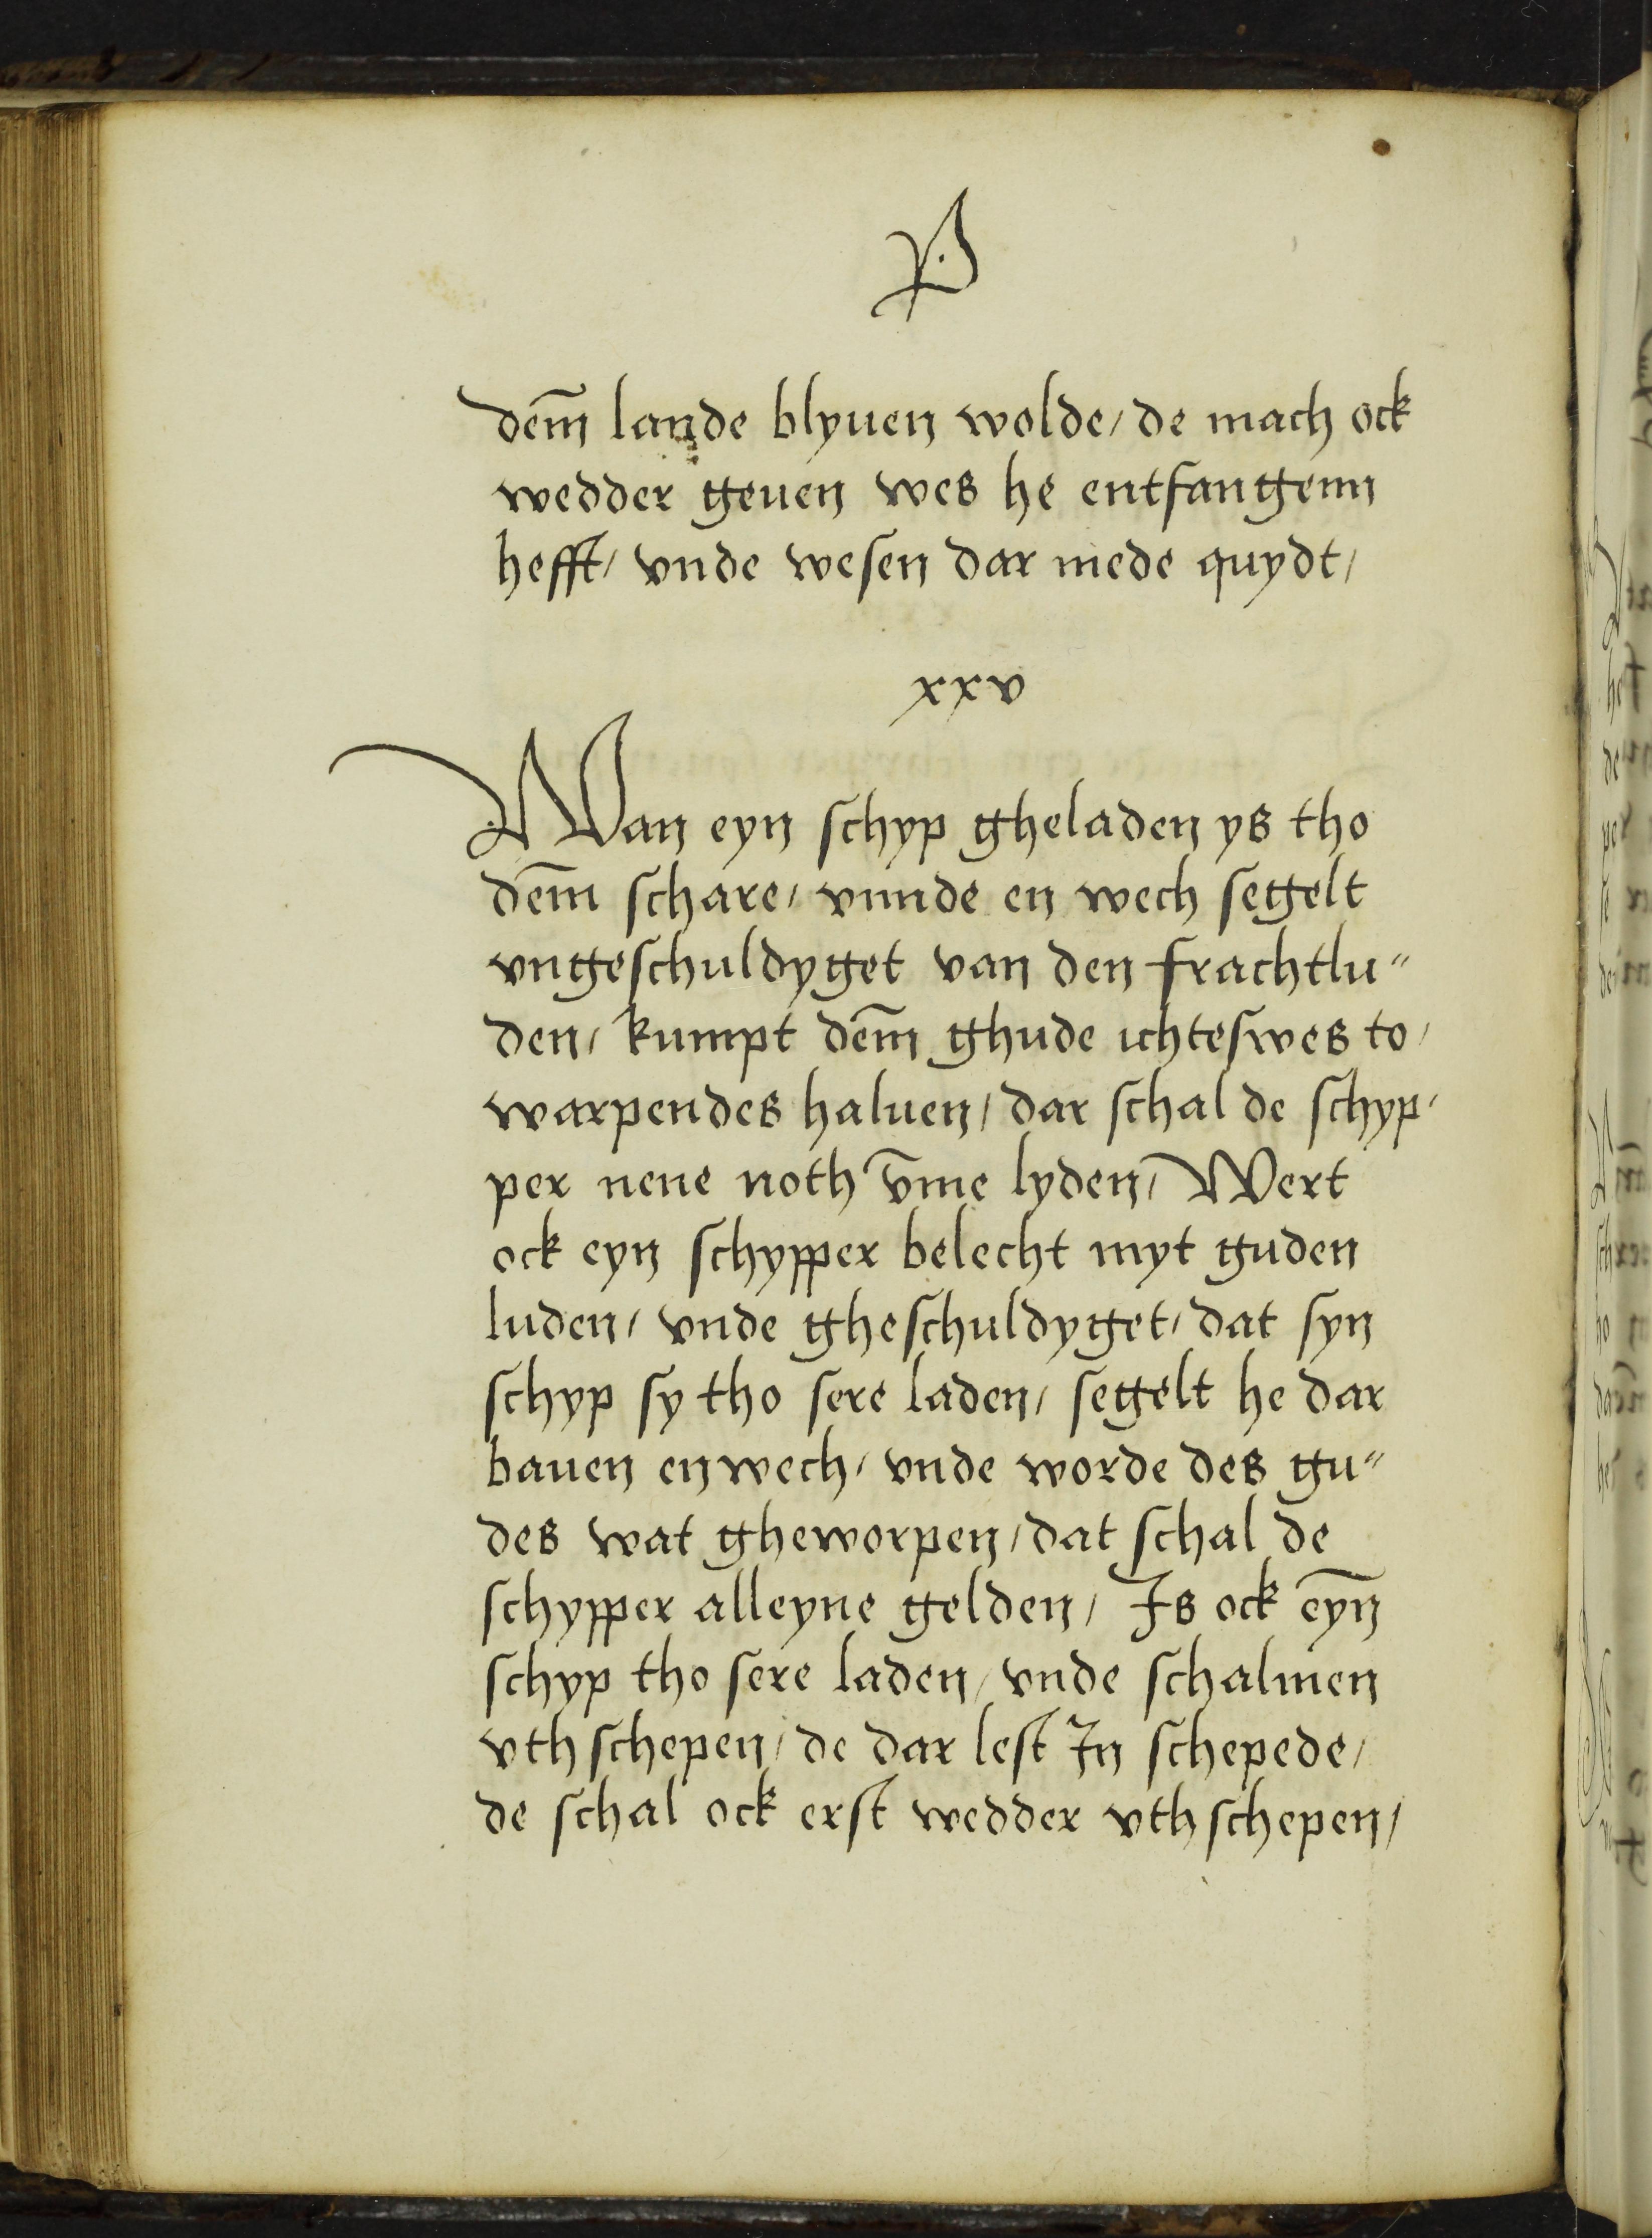 P
dem̄ lande blyuen wolde/ de mach ock
wedder geuen wes he entfangenn
hefft/ vnde wesen dar mede quydt/
xxv
Wan eyn schyp gheladen ys tho
dem̄ schare/ vnnde en wech segelt
vngeschuldyget van den frachtlu⸗
den/ kumpt dem̄ ghude ichteswes to/
warpendes haluen/ dar schal de schyp/
per nene noth v̄me lyden/ Wert
ock eyn schypper belecht myt guden
luden/ vnde gheschuldyget/ dat syn
schyp sy tho sere laden/ segelt he dar
bauen enwech/ vnde worde des gu⸗
des wat gheworpen/ dat schal de
schypper alleyne gelden/ Is ock eyn̄
schyp tho sere laden/ vnde schalmen
vth schepen/ de dar lest In schepede/
de schal ock erst wedder vth schepen/